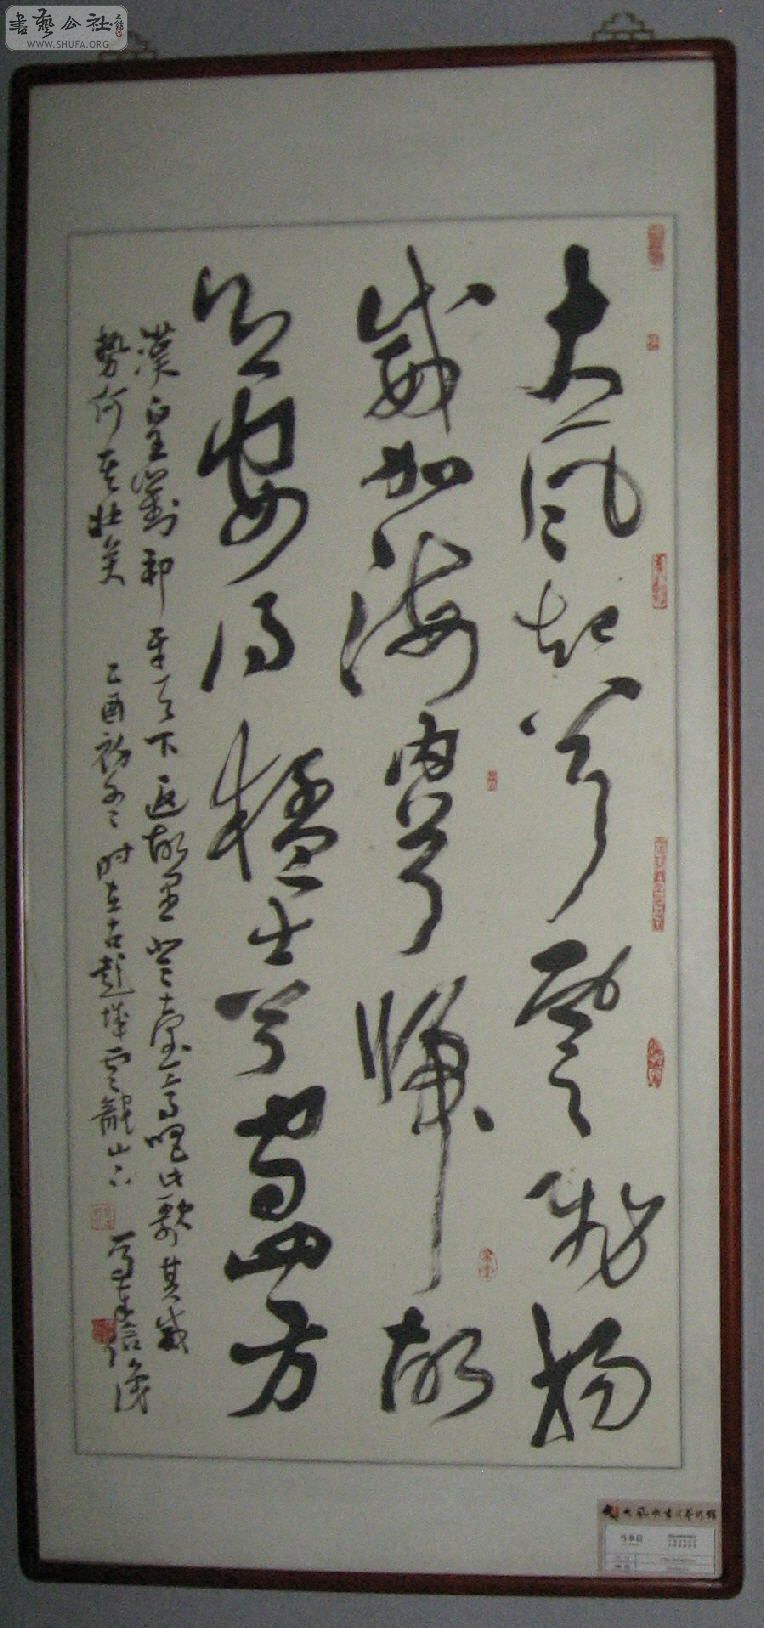 書藝公社
WWW.SHUFA.ORG
大風起兮雲飛揚
威加海内兮歸故
鄉安得猛士兮守四方
漢皇劉邦平天下返故里登臺高唱此歌其威
勢何其壯矣 乙酉初冬時在古彭城雲龍山下